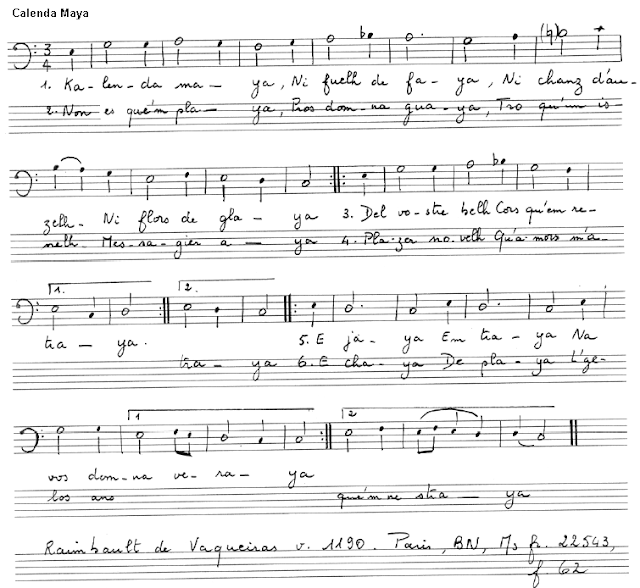 Calenda Maya
3
4
1. Ka-len-da ma-ya, Ni fuelh de fa-ya, Ni chanz d'au-
2. Non es que'm pla-ya, Pros dom-na gua-ya, Tro qu'un is-
zelh- Ni flors de gla-ya 3. Del vo-stre belh Cors qu'em re-
nelh- Mes-sa-gier a-ya 4. Pla-zer no-velh Qu'a-mors m'a-
1. 2.
tra-ya. 5. E ja-ya Em tra-ya Na
tra-ya 6. E cha-ya De pla-ya L'ge-
1 2
vos dom-na ve-ra-ya
los ans que'm ne stra-ya
Raimbault de Vaqueiras v. 1190. Paris, BN, Ms fr. 22543,
f. 62